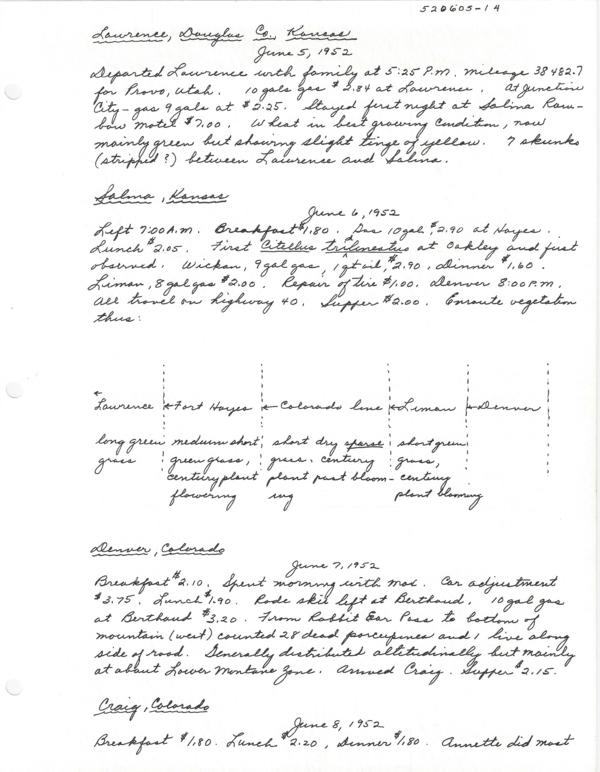 520605-14
Lawrence, Douglas Co., Kansas
June 5, 1952
Departed Lawrence with family at 5:25 P.M. mileage 38482.7
for Provo, Utah. 10 gals gas $2.84 at Lawrence. At Junction
City - gas 9 gals at $2.25. Stayed first night at Salina Rain-
bow Motel $7.00. Wheat in best growing condition, now
mainly green but showing slight tinge of yellow. 7 skunks
(stripped?) between Lawrence and Salina.
Salina, Kansas
June 6, 1952
Left 7:00 A.M. Breakfast $1.80. Gas 10 gal $2.90 at Hayes.
Lunch $2.05. First Citellus at Oakley and just
observed. 9 gal gas, 1 qt oil, $2.90. Dinner $1.60.
Limon, 8 gal gas $2.00. Repair of tire $1.00. Denver 8:00 P.M.
All travel on highway 40. Supper $2.00. Enroute vegetation
thus:
Lawrence ←Fort Hayes ←Colorado line ←Limon ←Denver
long green medium short, short dry sparse short green
grass green grass, grass. century grass,
century plant plant past bloom- century
flowering ing plant blooming
Denver, Colorado
June 7, 1952
Breakfast $2.10. Spent morning with Mac. Car adjustment
$3.75. Lunch $1.90. Rode skii left at Berthoud. 10 gal gas
at Berthoud $3.20. From Rabbit Ear Pass to bottom of
mountain (west) counted 28 dead porcupines and 1 live along
side of road. Generally distributed altitudinally but mainly
at about Lower Montane Zone. Arrived Craig. Supper $2.15.
Craig, Colorado
June 8, 1952
Breakfast $1.80. Lunch $2.20, Dinner $1.80. Annette did most